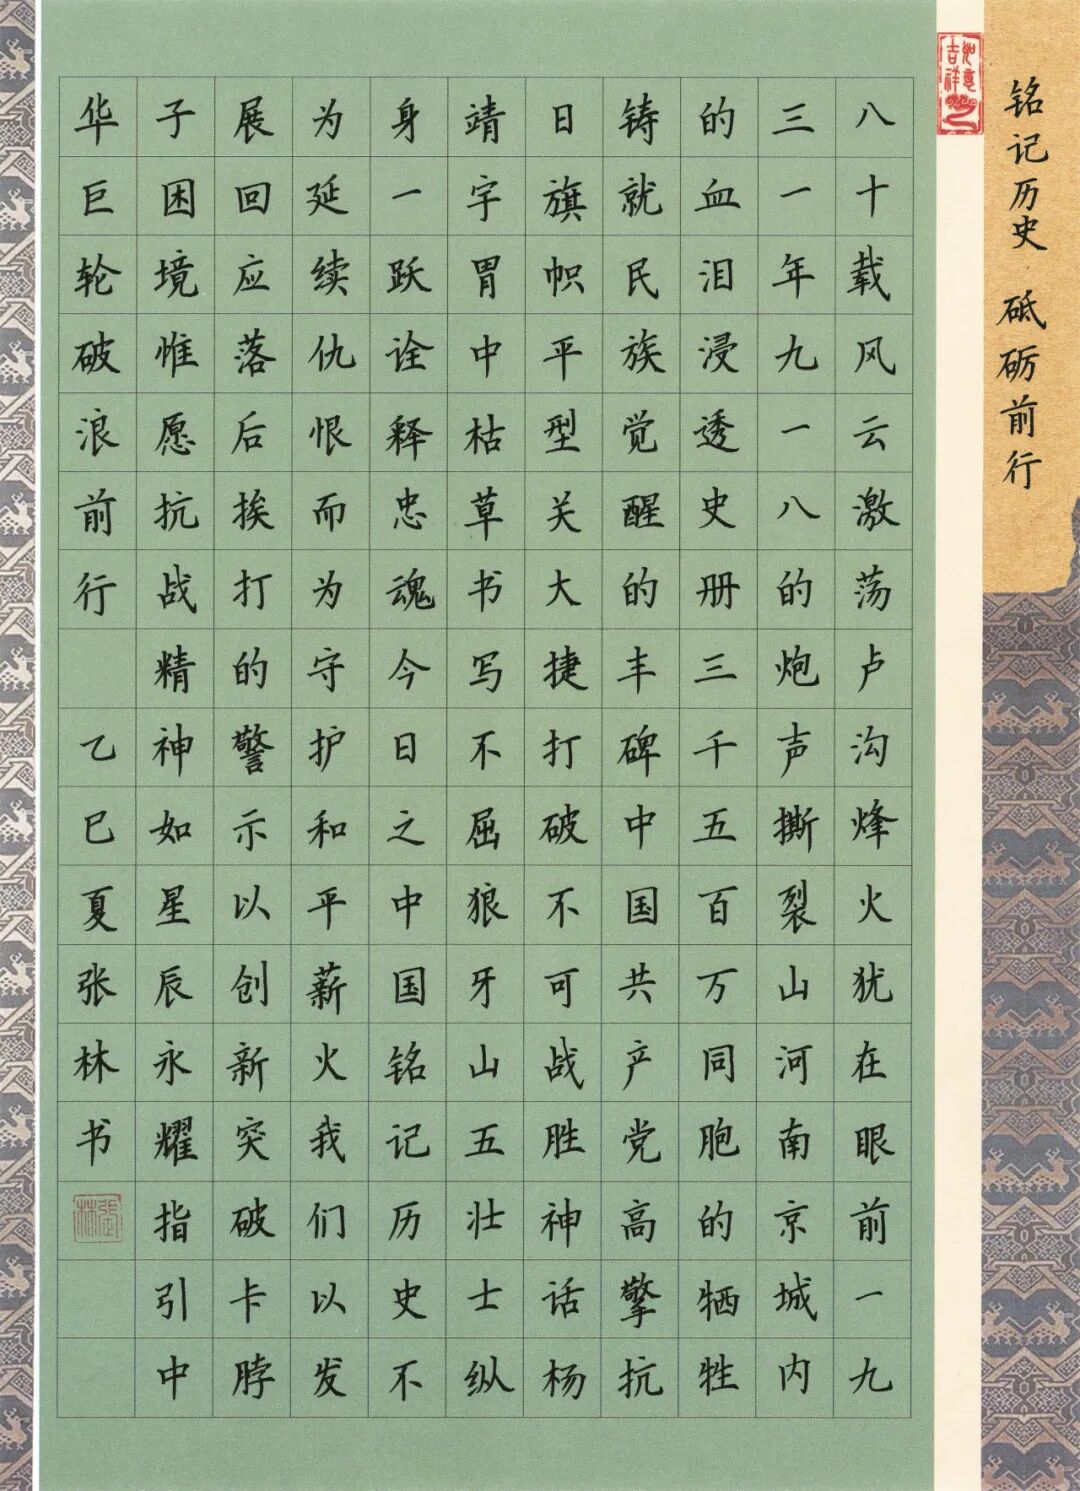 铭记历史 砥砺前行
如意吉祥
八十载风云激荡卢沟烽火犹在眼前一九
三一年九一八的炮声撕裂山河南京城内
的血泪浸透史册三千五百万同胞的牺牲
铸就民族觉醒的丰碑中国共产党高擎抗
日旗帜平型关大捷打破不可战胜神话杨
靖宇胃中枯草书写不屈狼牙山五壮士纵
身一跃诠释忠魂今日之中国铭记历史不
为延续仇恨而为守护和平薪火我们以发
展回应落后挨打的警示以创新突破卡脖
子困境惟愿抗战精神如星辰永耀指引中
华巨轮破浪前行 乙巳夏张林书
張林